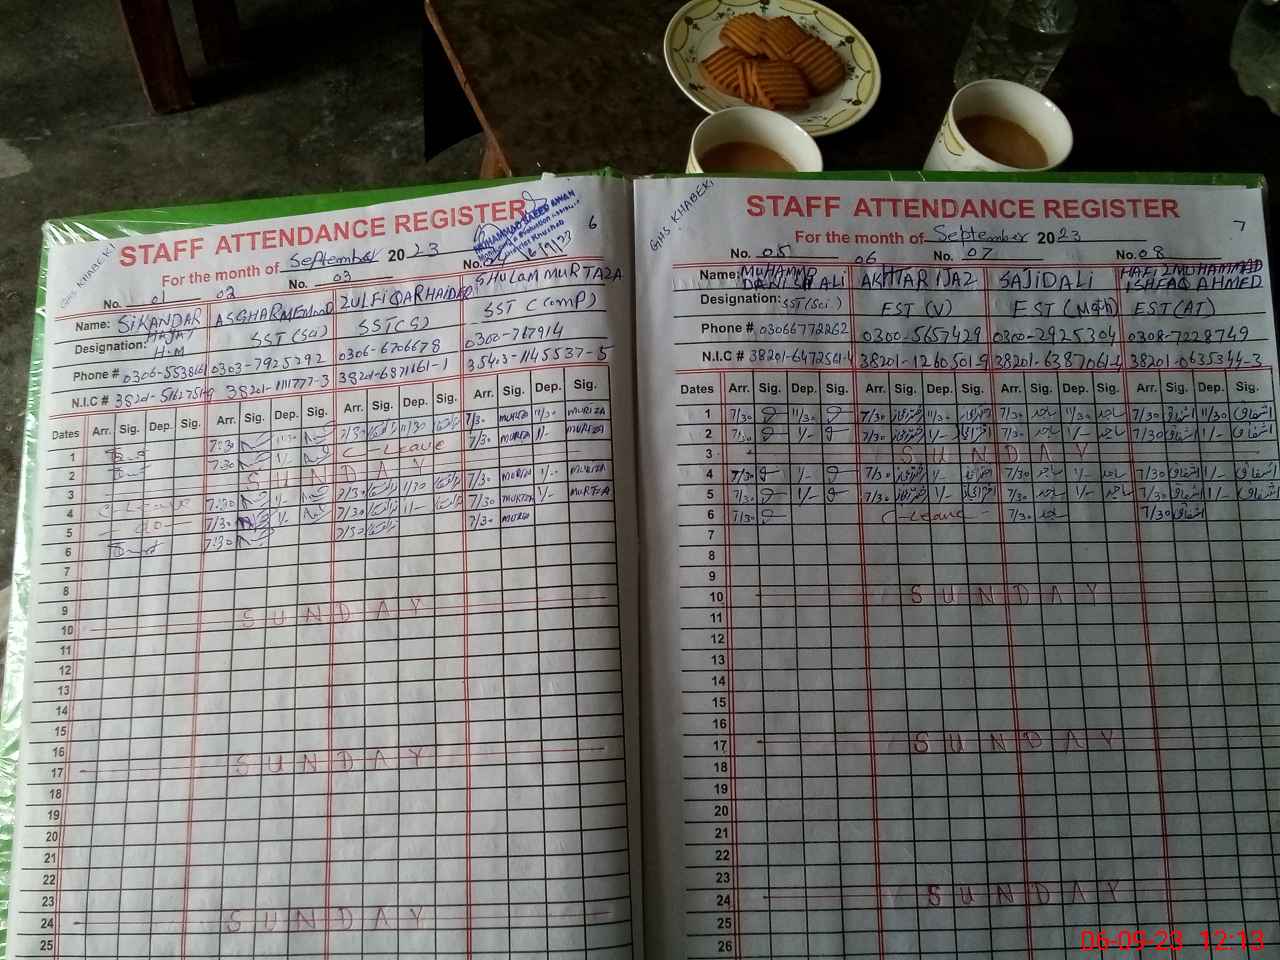 GHS KHABEKI
STAFF ATTENDANCE REGISTER
MUHAMMAD SAEED AWAN
6
For the month of September 2023
No. 01 02 No. 03 No. 04
Name: SIKANDAR HAYAT ASGHAR MEHMOOD ZULFIQAR HAIDER GHULAM MURTAZA
Designation: H.M SST (Sci) SST(G) SST (Comp)
Phone # 0303-7925292 0306-6706678 0300-767914
N.I.C # 38201-1111777-3 38201-6871661-1 35403-1145537-5
Dates Arr. Sig. Dep. Sig. Arr. Sig. Dep. Sig. Arr. Sig. Dep. Sig. Arr. Sig. Dep. Sig.
1 7:30 11:30 7/30 11/30 7/30 MURTZA 11/30 MURTZA
2 7:30 1/- C-Leave 7/30 MURTZA 1/- MURTZA
3 SUNDAY
4 C-Leave 7:30 1/- 7/30 7/30 MURTZA 1/- MURTZA
5 do 7/30 1/- 7/30 1/- 7/30 MURTZA 1/- MURTZA
6 7:30 7/30 7/30 MURTZA
7
8
9
10 SUNDAY
11
12
13
14
15
16
17 SUNDAY
18
19
20
21
22
23
24 SUNDAY
25
GHS KHABEKI
STAFF ATTENDANCE REGISTER
7
For the month of September 2023
No. 05 06 No. 07 No. 08
Name: MUHAMMAD DANISH ALI AKHTAR IJAZ SAJID ALI HAFIZ MUHAMMAD ISHFAQ AHMED
Designation: SST (Sci) EST (V) EST (Math) EST (AT)
Phone # 03066772262 0300-5657429 0300-2925304 0308-7228749
N.I.C # 38201-6472561-4 38201-1260501-9 38201-6387061-4 38201-0635344-3
Dates Arr. Sig. Dep. Sig. Arr. Sig. Dep. Sig. Arr. Sig. Dep. Sig. Arr. Sig. Dep. Sig.
1 7/30 11/30 7/30 11/30 7/30 ساجد 11/30 ساجد 7/30 اشفاق 11/30 اشفاق
2 7/30 1/- 7/30 1/- 7/30 ساجد 1/- ساجد 7/30 اشفاق 1/- اشفاق
3 SUNDAY
4 7/30 1/- 7/30 1/- 7/30 ساجد 1/- ساجد 7/30 اشفاق 1/- اشفاق
5 7/30 1/- 7/30 1/- 7/30 ساجد 1/- ساجد 7/30 اشفاق 1/- اشفاق
6 7/30 C-Leave 7/30 ساجد 7/30 اشفاق
7
8
9
10 SUNDAY
11
12
13
14
15
16
17 SUNDAY
18
19
20
21
22
23
24 SUNDAY
25
26
06-09-23 12:13